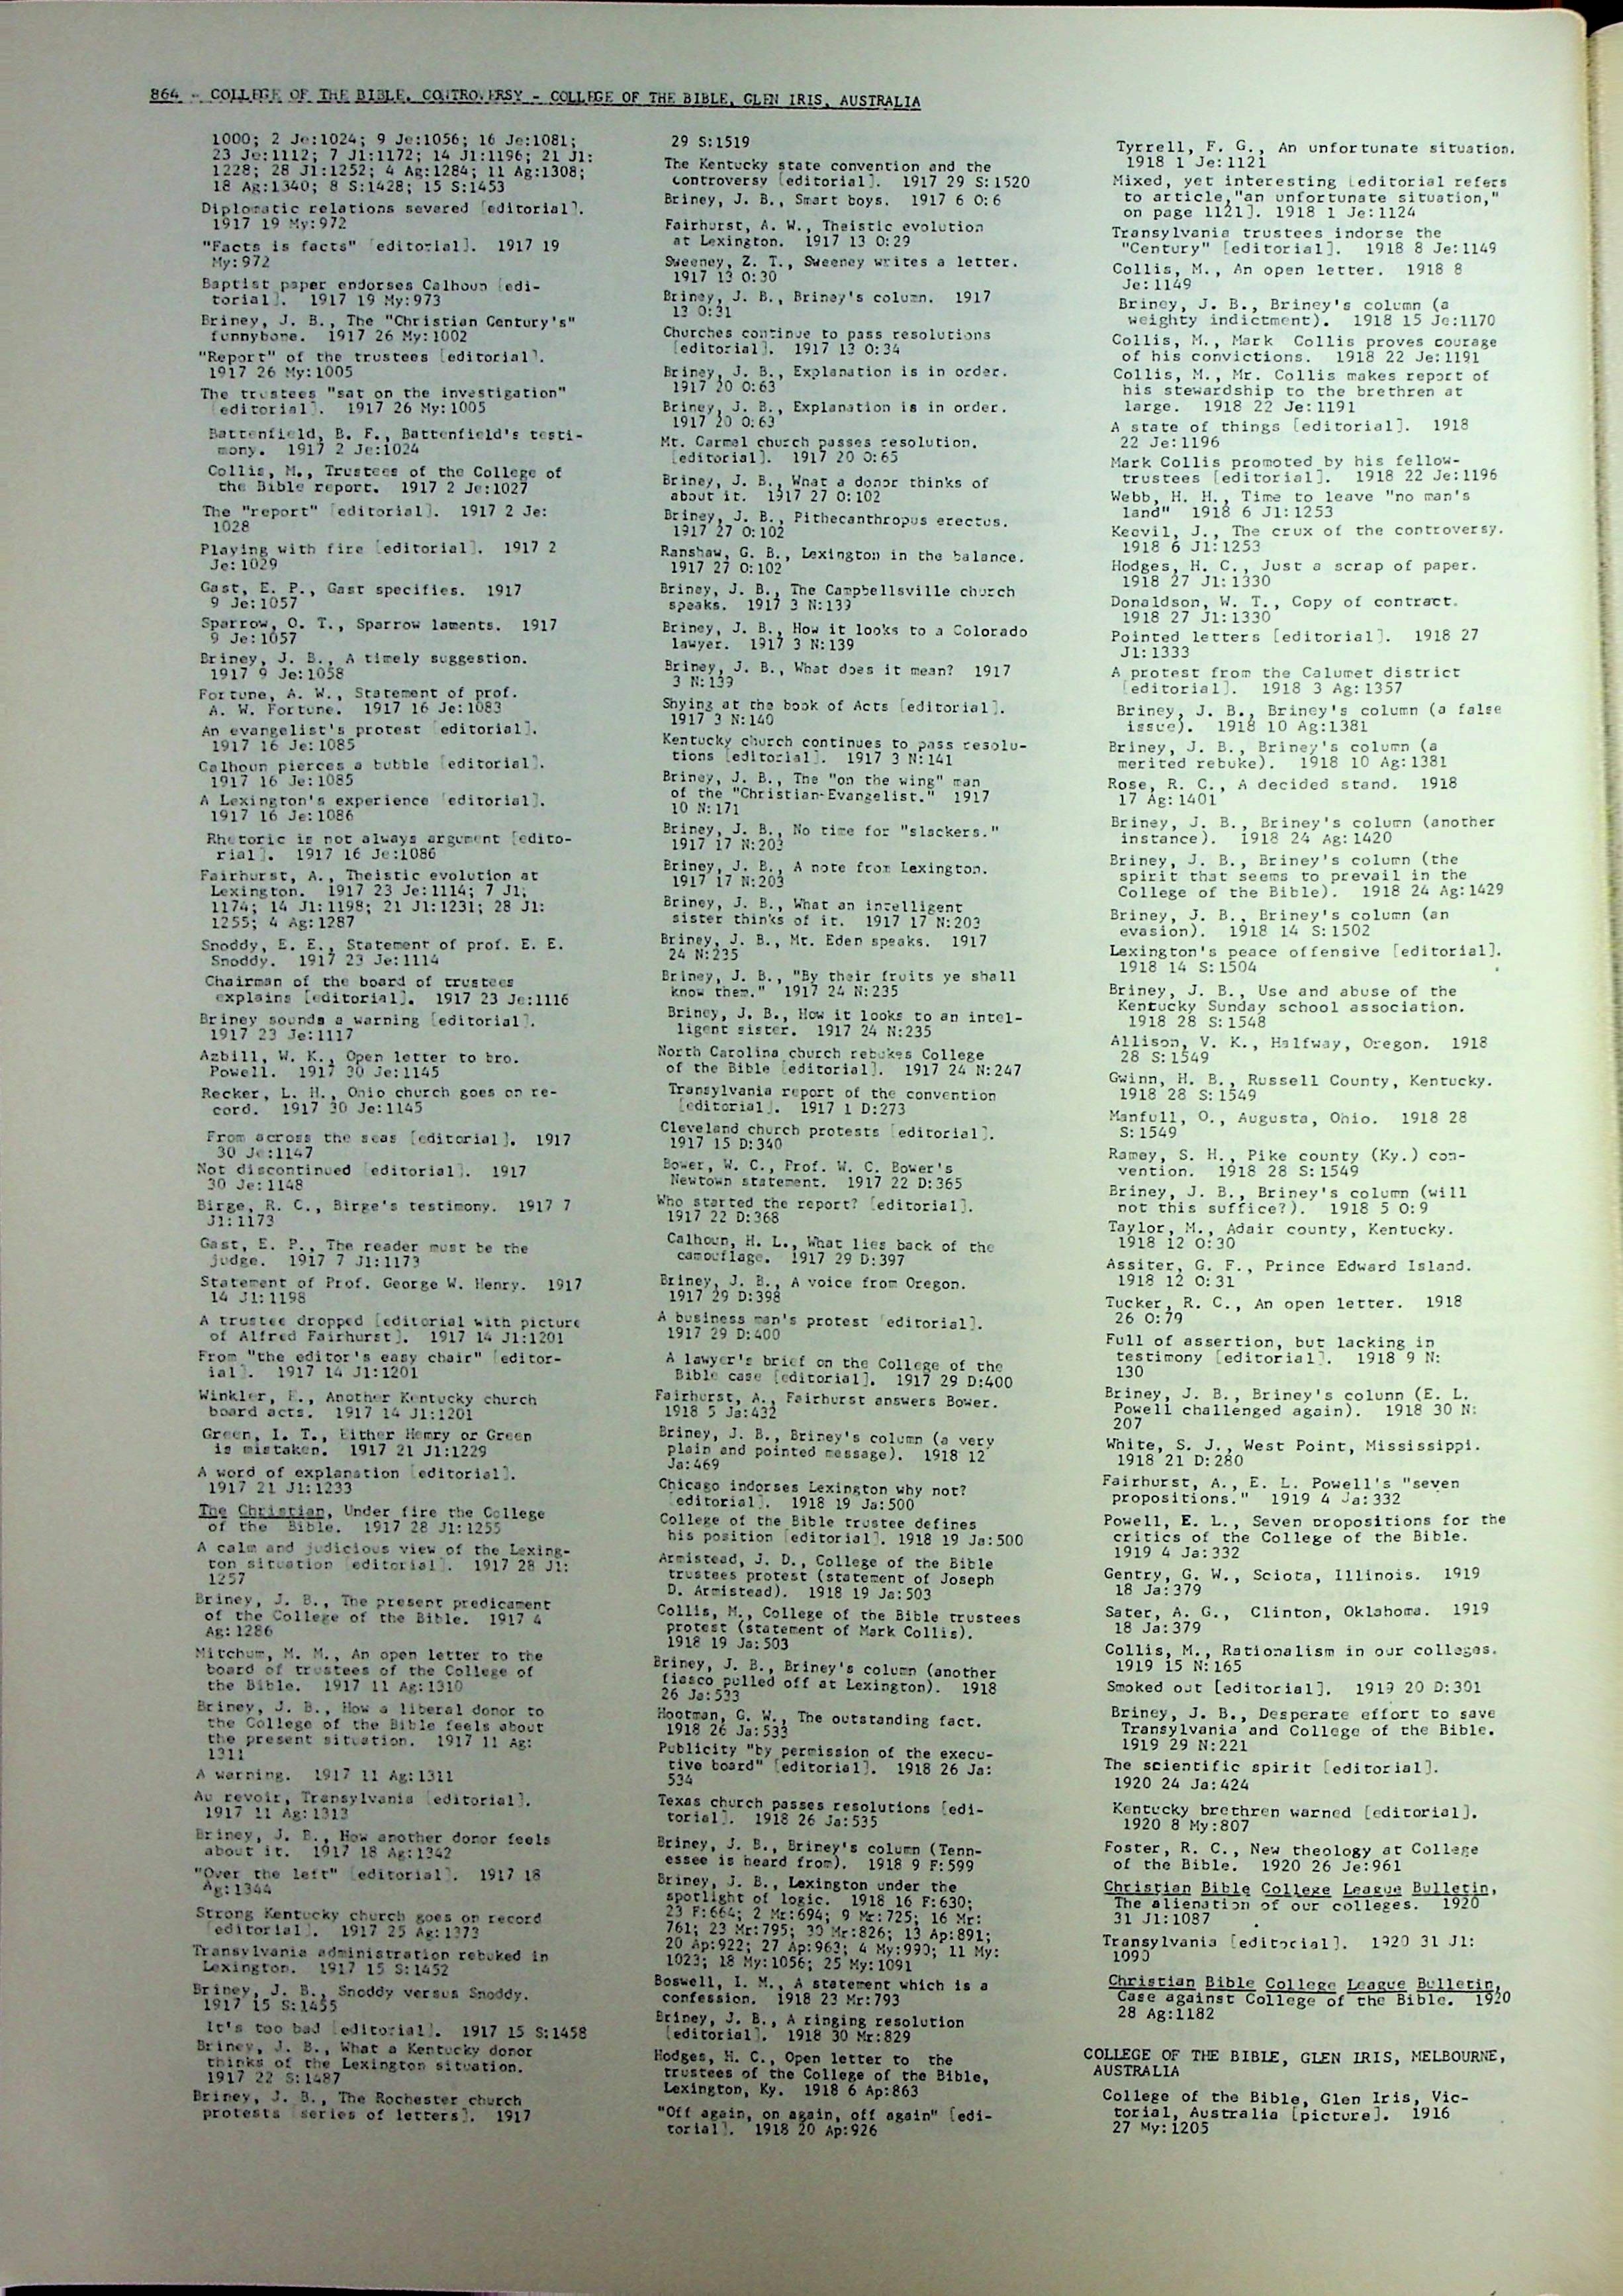 864 - COLLEGE OF THE BIBLE, CONTROVERSY - COLLEGE OF THE BIBLE, GLEN IRIS, AUSTRALIA
1000; 2 Je:1024; 9 Je:1056; 16 Je:1081;
23 Je:1112; 7 Jl:1172; 14 Jl:1196; 21 Jl:
1228; 28 Jl:1252; 4 Ag:1284; 11 Ag:1308;
18 Ag:1340; 8 S:1428; 15 S:1453
Diplomatic relations severed [editorial].
1917 19 My:972
"Facts is facts" [editorial]. 1917 19
My:972
Baptist paper endorses Calhoun [edi-
torial]. 1917 19 My:973
Briney, J. B., The "Christian Century's"
funnybone. 1917 26 My:1002
"Report" of the trustees [editorial].
1917 26 My:1005
The trustees "sat on the investigation"
[editorial]. 1917 26 My:1005
Battenfield, B. F., Battenfield's testi-
mony. 1917 2 Je:1024
Collis, M., Trustees of the College of
the Bible report. 1917 2 Je:1027
The "report" [editorial]. 1917 2 Je:
1028
Playing with fire [editorial]. 1917 2
Je:1029
Gast, E. P., Gast specifies. 1917
9 Je:1057
Sparrow, O. T., Sparrow laments. 1917
9 Je:1057
Briney, J. B., A timely suggestion.
1917 9 Je:1058
Fortune, A. W., Statement of prof.
A. W. Fortune. 1917 16 Je:1083
An evangelist's protest [editorial].
1917 16 Je:1085
Calhoun pierces a bubble [editorial].
1917 16 Je:1085
A Lexington's experience [editorial].
1917 16 Je:1086
Rhetoric is not always argument [edito-
rial]. 1917 16 Je:1086
Fairhurst, A., Theistic evolution at
Lexington. 1917 23 Je:1114; 7 Jl;
1174; 14 Jl:1198; 21 Jl:1231; 28 Jl:
1255; 4 Ag:1287
Snoddy, E. E., Statement of prof. E. E.
Snoddy. 1917 23 Je:1114
Chairman of the board of trustees
explains [editorial]. 1917 23 Je:1116
Briney sounds a warning [editorial].
1917 23 Je:1117
Azbill, W. K., Open letter to bro.
Powell. 1917 30 Je:1145
Recker, L. H., Ohio church goes on re-
cord. 1917 30 Je:1145
From across the seas [editorial]. 1917
30 Je:1147
Not discontinued [editorial]. 1917
30 Je:1148
Birge, R. C., Birge's testimony. 1917 7
Jl:1173
Gast, E. P., The reader must be the
judge. 1917 7 Jl:1173
Statement of Prof. George W. Henry. 1917
14 Jl:1198
A trustee dropped [editorial with picture
of Alfred Fairhurst]. 1917 14 Jl:1201
From "the editor's easy chair" [editor-
ial]. 1917 14 Jl:1201
Winkler, Another Kentucky church
board acts. 1917 14 Jl:1201
Green, I. T., Either Henry or Green
is mistaken. 1917 21 Jl:1229
A word of explanation [editorial].
1917 21 Jl:1233
The Christian, Under fire the College
of the Bible. 1917 28 Jl:1255
A calm and judicious view of the Lexing-
ton situation [editorial]. 1917 28 Jl:
1257
Briney, J. B., The present predicament
of the College of the Bible. 1917 4
Ag:1286
Mitchum, M. M., An open letter to the
board of trustees of the College of
the Bible. 1917 11 Ag:1310
Briney, J. B., How a liberal donor to
the College of the Bible feels about
the present situation. 1917 11 Ag:
1311
A warning. 1917 11 Ag:1311
Au revoir, Transylvania [editorial].
1917 11 Ag:1313
Briney, J. B., How another donor feels
about it. 1917 18 Ag:1342
"Over the left" [editorial]. 1917 18
Ag:1344
Strong Kentucky church goes on record
[editorial]. 1917 25 Ag:1373
Transylvania administration rebuked in
Lexington. 1917 15 S:1452
Briney, J. B., Snoddy versus Snoddy.
1917 15 S:1455
It's too bad [editorial]. 1917 15 S:1458
Briney, J. B., What a Kentucky donor
thinks of the Lexington situation.
1917 22 S:1487
Briney, J. B., The Rochester church
protests [series of letters]. 1917
29 S:1519
The Kentucky state convention and the
controversy [editorial]. 1917 29 S:1520
Briney, J. B., Smart boys. 1917 6 O:6
Fairhurst, A. W., Theistic evolution
at Lexington. 1917 13 O:29
Sweeney, Z. T., Sweeney writes a letter.
1917 13 O:30
Briney, J. B., Briney's column. 1917
13 O:31
Churches continue to pass resolutions
[editorial]. 1917 13 O:34
Briney, J. B., Explanation is in order.
1917 20 O:63
Briney, J. B., Explanation is in order.
1917 20 O:63
Mt. Carmel church passes resolution.
[editorial]. 1917 20 O:65
Briney, J. B., What a donor thinks of
about it. 1917 27 O:102
Briney, J. B., Pithecanthropus erectus.
1917 27 O:102
Ranshaw, G. B., Lexington in the balance.
1917 27 O:102
Briney, J. B., The Campbellsville church
speaks. 1917 3 N:139
Briney, J. B., How it looks to a Colorado
lawyer. 1917 3 N:139
Briney, J. B., What does it mean? 1917
3 N:139
Shying at the book of Acts [editorial].
1917 3 N:140
Kentucky church continues to pass resolu-
tions [editorial]. 1917 3 N:141
Briney, J. B., The "on the wing" man
of the "Christian-Evangelist." 1917
10 N:171
Briney, J. B., No time for "slackers."
1917 17 N:203
Briney, J. B., A note from Lexington.
1917 17 N:203
Briney, J. B., What an intelligent
sister thinks of it. 1917 17 N:203
Briney, J. B., Mt. Eden speaks. 1917
24 N:235
Briney, J. B., "By their fruits ye shall
know them." 1917 24 N:235
Briney, J. B., How it looks to an intel-
ligent sister. 1917 24 N:235
North Carolina church rebukes College
of the Bible [editorial]. 1917 24 N:247
Transylvania report of the convention
[editorial]. 1917 1 D:273
Cleveland church protests [editorial].
1917 15 D:340
Bower, W. C., Prof. W. C. Bower's
Newtown statement. 1917 22 D:365
Who started the report? [editorial].
1917 22 D:368
Calhoun, H. L., What lies back of the
camouflage. 1917 29 D:397
Briney, J. B., A voice from Oregon.
1917 29 D:398
A business man's protest [editorial].
1917 29 D:400
A lawyer's brief on the College of the
Bible case [editorial]. 1917 29 D:400
Fairhurst, A., Fairhurst answers Bower.
1918 5 Ja:432
Briney, J. B., Briney's column (a very
plain and pointed message). 1918 12
Ja:469
Chicago indorses Lexington why not?
[editorial]. 1918 19 Ja:500
College of the Bible trustee defines
his position [editorial]. 1918 19 Ja:500
Armistead, J. D., College of the Bible
trustees protest (statement of Joseph
D. Armistead). 1918 19 Ja:503
Collis, M., College of the Bible trustees
protest (statement of Mark Collis).
1918 19 Ja:503
Briney, J. B., Briney's column (another
fiasco pulled off at Lexington). 1918
26 Ja:533
Hootman, G. W., The outstanding fact.
1918 26 Ja:533
Publicity "by permission of the execu-
tive board" [editorial]. 1918 26 Ja:
534
Texas church passes resolutions [edi-
torial]. 1918 26 Ja:535
Briney, J. B., Briney's column (Tenn-
essee is heard from). 1918 9 F:599
Briney, J. B., Lexington under the
spotlight of logic. 1918 16 F:630;
23 F:664; 2 Mr:694; 9 Mr:725; 16 Mr:
761; 23 Mr:795; 30 Mr:826; 13 Ap:891;
20 Ap:922; 27 Ap:963; 4 My:990; 11 My:
1023; 18 My:1056; 25 My:1091
Boswell, I. M., A statement which is a
confession. 1918 23 Mr:793
Briney, J. B., A ringing resolution
[editorial]. 1918 30 Mr:829
Hodges, H. C., Open letter to the
trustees of the College of the Bible,
Lexington, Ky. 1918 6 Ap:863
"Off again, on again, off again" [edi-
torial]. 1918 20 Ap:926
Tyrrell, F. G., An unfortunate situation.
1918 1 Je:1121
Mixed, yet interesting [editorial refers
to article,"an unfortunate situation,"
on page 1121]. 1918 1 Je:1124
Transylvania trustees indorse the
"Century" [editorial]. 1918 8 Je:1149
Collis, M., An open letter. 1918 8
Je:1149
Briney, J. B., Briney's column (a
weighty indictment). 1918 15 Je:1170
Collis, M., Mark Collis proves courage
of his convictions. 1918 22 Je:1191
Collis, M., Mr. Collis makes report of
his stewardship to the brethren at
large. 1918 22 Je:1191
A state of things [editorial]. 1918
22 Je:1196
Mark Collis promoted by his fellow-
trustees [editorial]. 1918 22 Je:1196
Webb, H. H., Time to leave "no man's
land" 1918 6 Jl:1253
Keevil, J., The crux of the controversy.
1918 6 Jl:1253
Hodges, H. C., Just a scrap of paper.
1918 27 Jl:1330
Donaldson, W. T., Copy of contract.
1918 27 Jl:1330
Pointed letters [editorial]. 1918 27
Jl:1333
A protest from the Calumet district
[editorial]. 1918 3 Ag:1357
Briney, J. B., Briney's column (a false
issue). 1918 10 Ag:1381
Briney, J. B., Briney's column (a
merited rebuke). 1918 10 Ag:1381
Rose, R. C., A decided stand. 1918
17 Ag:1401
Briney, J. B., Briney's column (another
instance). 1918 24 Ag:1420
Briney, J. B., Briney's column (the
spirit that seems to prevail in the
College of the Bible). 1918 24 Ag:1429
Briney, J. B., Briney's column (an
evasion). 1918 14 S:1502
Lexington's peace offensive [editorial].
1918 14 S:1504
Briney, J. B., Use and abuse of the
Kentucky Sunday school association.
1918 28 S:1548
Allison, V. K., Halfway, Oregon. 1918
28 S:1549
Gwinn, H. B., Russell County, Kentucky.
1918 28 S:1549
Manfull, O., Augusta, Ohio. 1918 28
S:1549
Ramey, S. H., Pike county (Ky.) con-
vention. 1918 28 S:1549
Briney, J. B., Briney's column (will
not this suffice?). 1918 5 O:9
Taylor, M., Adair county, Kentucky.
1918 12 O:30
Assiter, G. F., Prince Edward Island.
1918 12 O:31
Tucker, R. C., An open letter. 1918
26 O:79
Full of assertion, but lacking in
testimony [editorial]. 1918 9 N:
130
Briney, J. B., Briney's column (E. L.
Powell challenged again). 1918 30 N:
207
White, S. J., West Point, Mississippi.
1918 21 D:280
Fairhurst, A., E. L. Powell's "seven
propositions." 1919 4 Ja:332
Powell, E. L., Seven propositions for the
critics of the College of the Bible.
1919 4 Ja:332
Gentry, G. W., Sciota, Illinois. 1919
18 Ja:379
Sater, A. G., Clinton, Oklahoma. 1919
18 Ja:379
Collis, M., Rationalism in our colleges.
1919 15 N:165
Smoked out [editorial]. 1919 20 D:301
Briney, J. B., Desperate effort to save
Transylvania and College of the Bible.
1919 29 N:221
The scientific spirit [editorial].
1920 24 Ja:424
Kentucky brethren warned [editorial].
1920 8 My:807
Foster, R. C., New theology at College
of the Bible. 1920 26 Je:961
Christian Bible College League Bulletin,
The alienation of our colleges. 1920
31 Jl:1087
Transylvania [editorial]. 1920 31 Jl:
1090
Christian Bible College League Bulletin,
Case against College of the Bible. 1920
28 Ag:1182
COLLEGE OF THE BIBLE, GLEN IRIS, MELBOURNE,
AUSTRALIA
College of the Bible, Glen Iris, Vic-
torial, Australia [picture]. 1916
27 My:1205